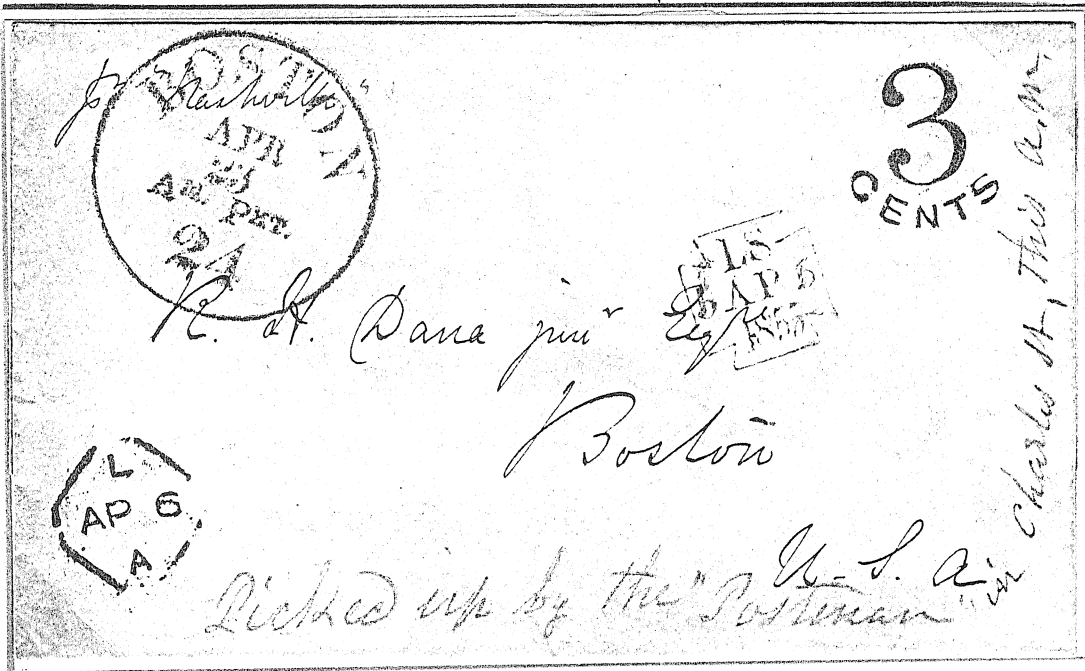 pr "Nashville"
BOSTON
APR
Am. Pkt.
24
3
CENTS
LS
AP 5
R. H. Dana junr Esqr
Boston
U. S. A.
L
AP 6
A
Picked up by the "Postman"
in Charles St, this a.m.